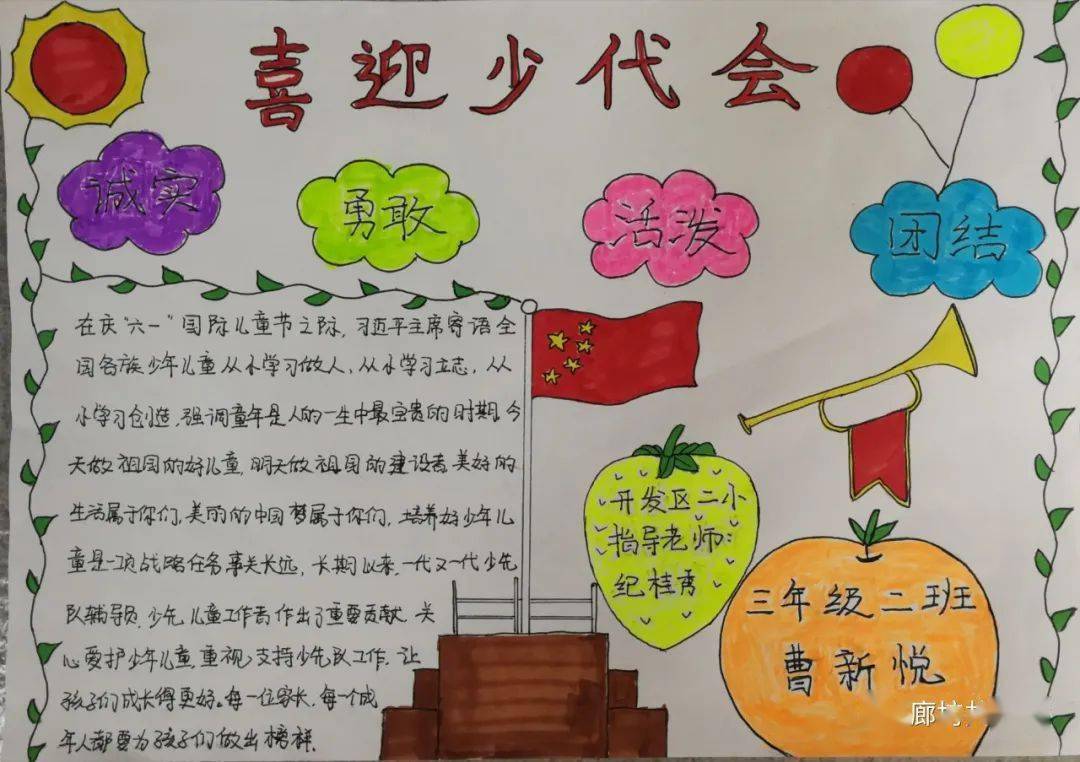 喜迎少代会
诚实
勇敢
活泼
团结
在庆"六一"国际儿童节之际，习近平主席寄语全
国各族少年儿童从小学习做人，从小学习立志，从
小学习创造，强调童年是人的一生中最宝贵的时期，今
天做祖国的好儿童，明天做祖国的建设者，美好的
生活属于你们，美的的中国梦属于你们，培养好少年儿
童是一项战略任务事关长远，长期以来，一代又一代少先
队辅导员，少先儿童工作者作出了重要贡献，关
心爱护少年儿童，重视支持少先队工作，让
孩子们成长得更好。每一位家长，每一个成
年人都要为孩子们做出榜样.
开发区二小
指导老师：
纪桂秀
三年级二班
曹新悦
廊坊